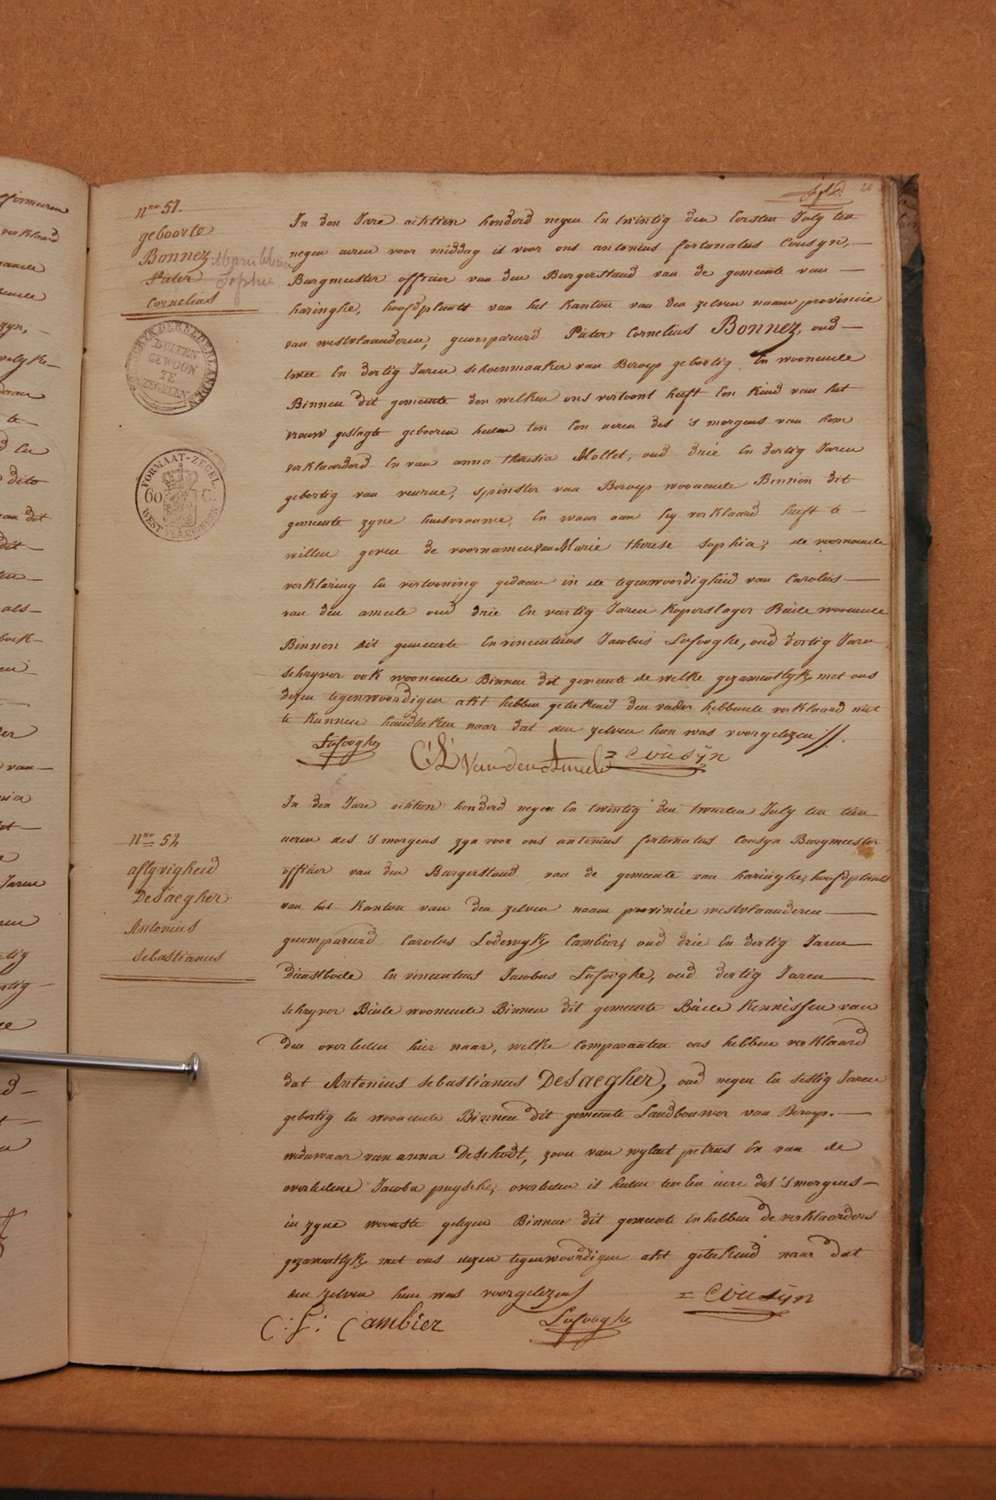 nro 51.
geboorte
Bonnez
Pieter
Cornelius
Sophie
DELFEN
GEWOON
TE
ZEGELEN
FORMAAT-ZEGEL
60 C.
WEST VLAANDEREN
In den Jare achtien honderd negen En twintig den Eersten July ten
negen uren voor middag is voor ons antonius fortunatus Cousyn,
Burgmeester officier van den Burgerstand van de gemeente van
haringhe, hoofdplaats van het kanton van den zelven naam provincie
van westvlaanderen, gecompareerd Pieter Cornelius Bonnez, oud
twee En dertig Jaren schoenmaaker van Beroep geboortig En woonende
Binnen dit gemeente den welken ons vertoont heeft Een kind van het
vrouw geslagte gebooren heden ten Een uren des 's morgens van hem
verklaarder En van anna theresia Mollet, oud drie En dertig Jaren
geboortig van veurne, spinster van Beroep woonende Binnen dit
gemeente zyne huisvrouwe, En waar aan hy verklaard heeft te
willen geven de voornamen van Marie therese sophia; de voornoemde
verklaring En vertooning gedaan in de tegenwoordigheid van Carolus
van den ameele oud drie En veertig Jaren koperslager Beide woonende
Binnen dit gemeente En vincentius Jacobus Lafooghe, oud dertig Jaren
schryver ook woonende Binnen dit gemeente de welke gezamentlyk met ons
dezen tegenwoordigen akt hebben geteekend den vader hebbende verklaard niet
te kunnen handteeken naar dat den zelven hun was voorgelezen //.
Lafooghe C: L: Van den Ameele Cousÿn
nro 52
aflyvigheid
DeSaegher
Antonius
Sebastianus
In den Jare achtien honderd negen En twintig den tweeden July ten tien
uren des 's morgens zyn voor ons antonius fortunatus Cousyn Burgmeester
officier van den Burgerstand van de gemeente van haringhe, hoofdplaats
van het Kanton van den zelven naam provincie westvlaanderen
gecompareerd Carolus Lodewyk Cambier, oud drie En dertig Jaren
dienstbode En vincentius Jacobus Lafooghe, oud dertig Jaren
schryver Beide woonende Binnen dit gemeente Beide Kennissen van
den overleden hier naar, welke comparanten ons hebben verklaard
dat Antonius sebastianus DeSaegher, oud negen En sestig Jaren
geboortig En woonende Binnen dit gemeente Landbouwer van Beroep.
weduwaar van anna Deschodt, zoon van wylent petrus En van de
overledene Jacoba puyseke, overleden is heden ten Een ure des 's morgens
in zyne woonste gelegen Binnen dit gemeente En hebben de verklaarders
gezamentlyk met ons dezen tegenwoordigen akt geteekend naar dat
den zelven hun was voorgelezen /
Cousÿn
C: L: Cambier Lafooghe